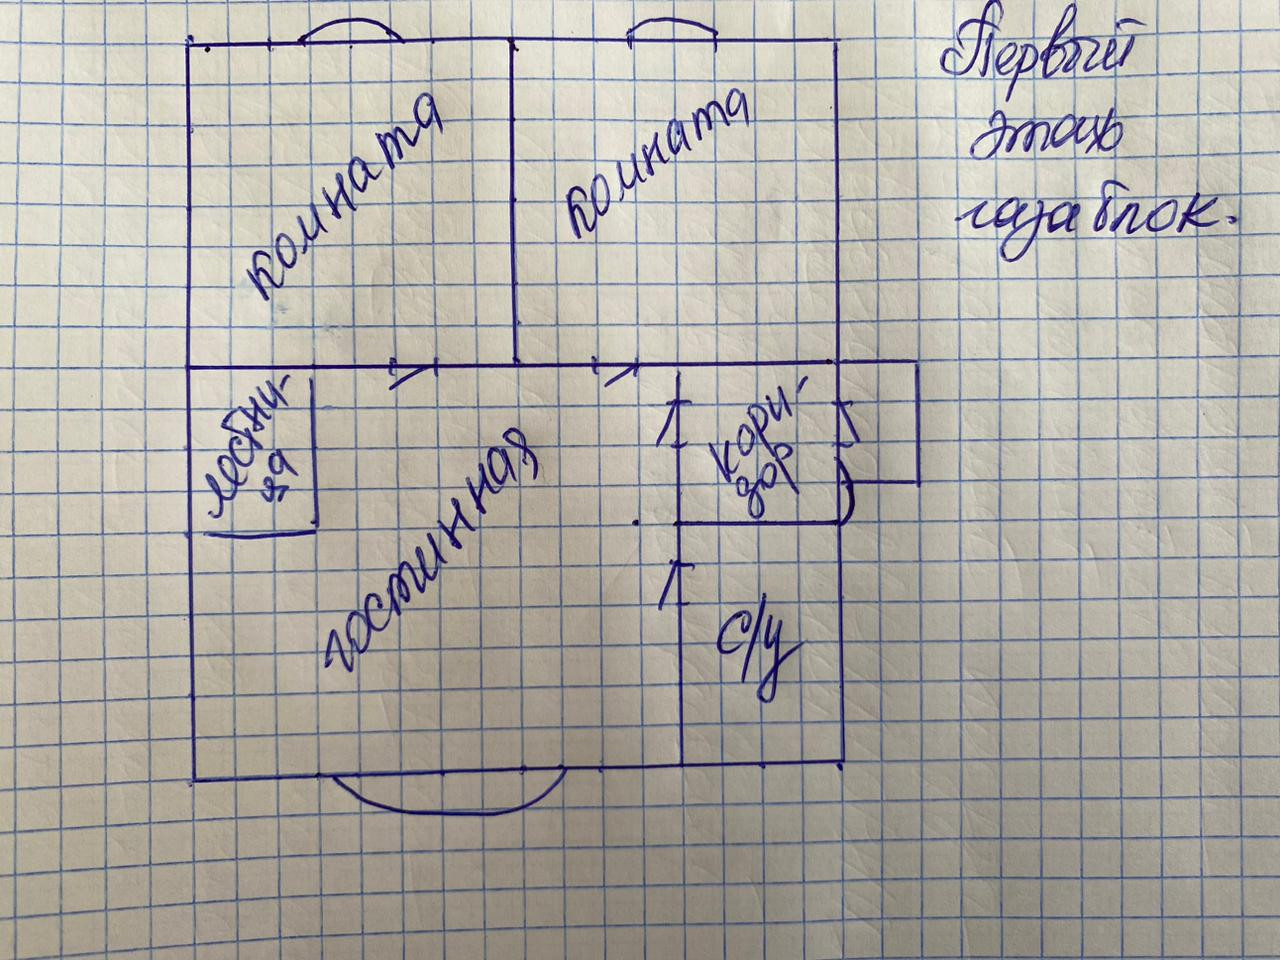 Первый
этаж
газаблок.
комната
комната
лестни-
ца
гостинная
кори-
дор
с/у